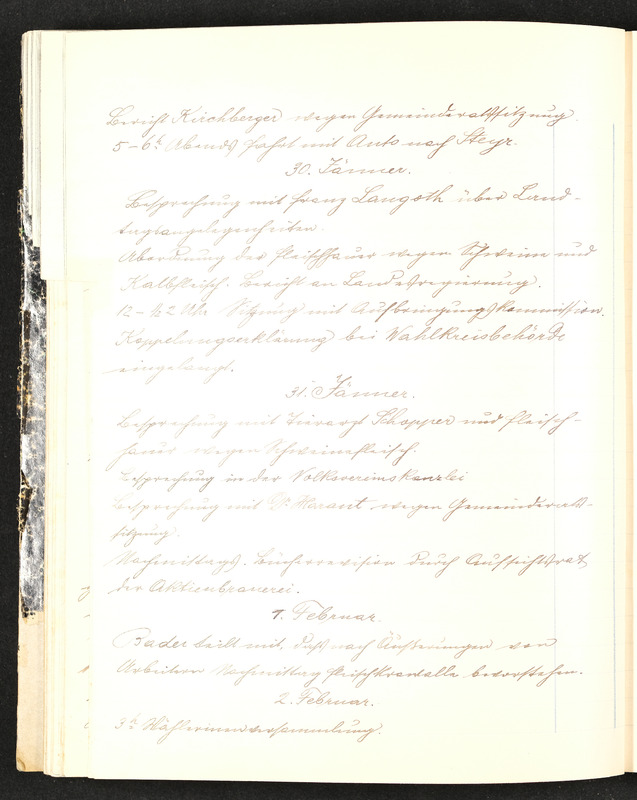 Bericht Kirchberger wegen Gemeinderatssitzung.
5-6h Abends Fahrt mit Auto nach Steyr.
30. Jänner.
Besprechung mit Franz Langoth über Land-
tagsangelegenheiten.
Abordnung der Fleischhauer wegen Schweine und
Kalbfleisch. Bericht an Landesregierung.
12-½2 Uhr Sitzung mit Aufbringungskommission.
Koppelungserklärung bei Wahlkreisbehörde
eingelangt.
31. Jänner.
Besprechung mit Tierarzt Schopper und Fleisch-
hauer wegen Schweinefleisch.
Besprechung in der Volksvereinskanzlei
Besprechung mit Dr. Harant wegen Gemeinderats-
sitzung.
Nachmittags. Bücherrevision durch Aufsichtsrat
der Aktienbrauerei.
1. Februar.
Bader teilt mit, daß nach Äußerungen von
Arbeitern Nachmittag Fleischkrawalle bevorstehen.
2. Februar.
3h Wählerinnenversammlung.